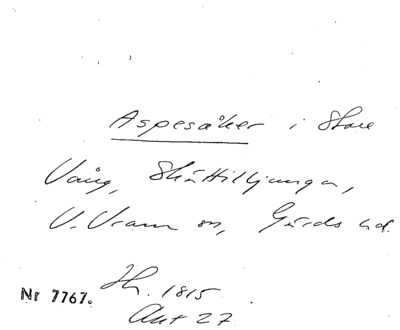 Aspesåker i Stora
Vång, Skättilljunga,
V. Vram sn, Gärds hd.
Nr 7767. Hh. 1815
Akt 27